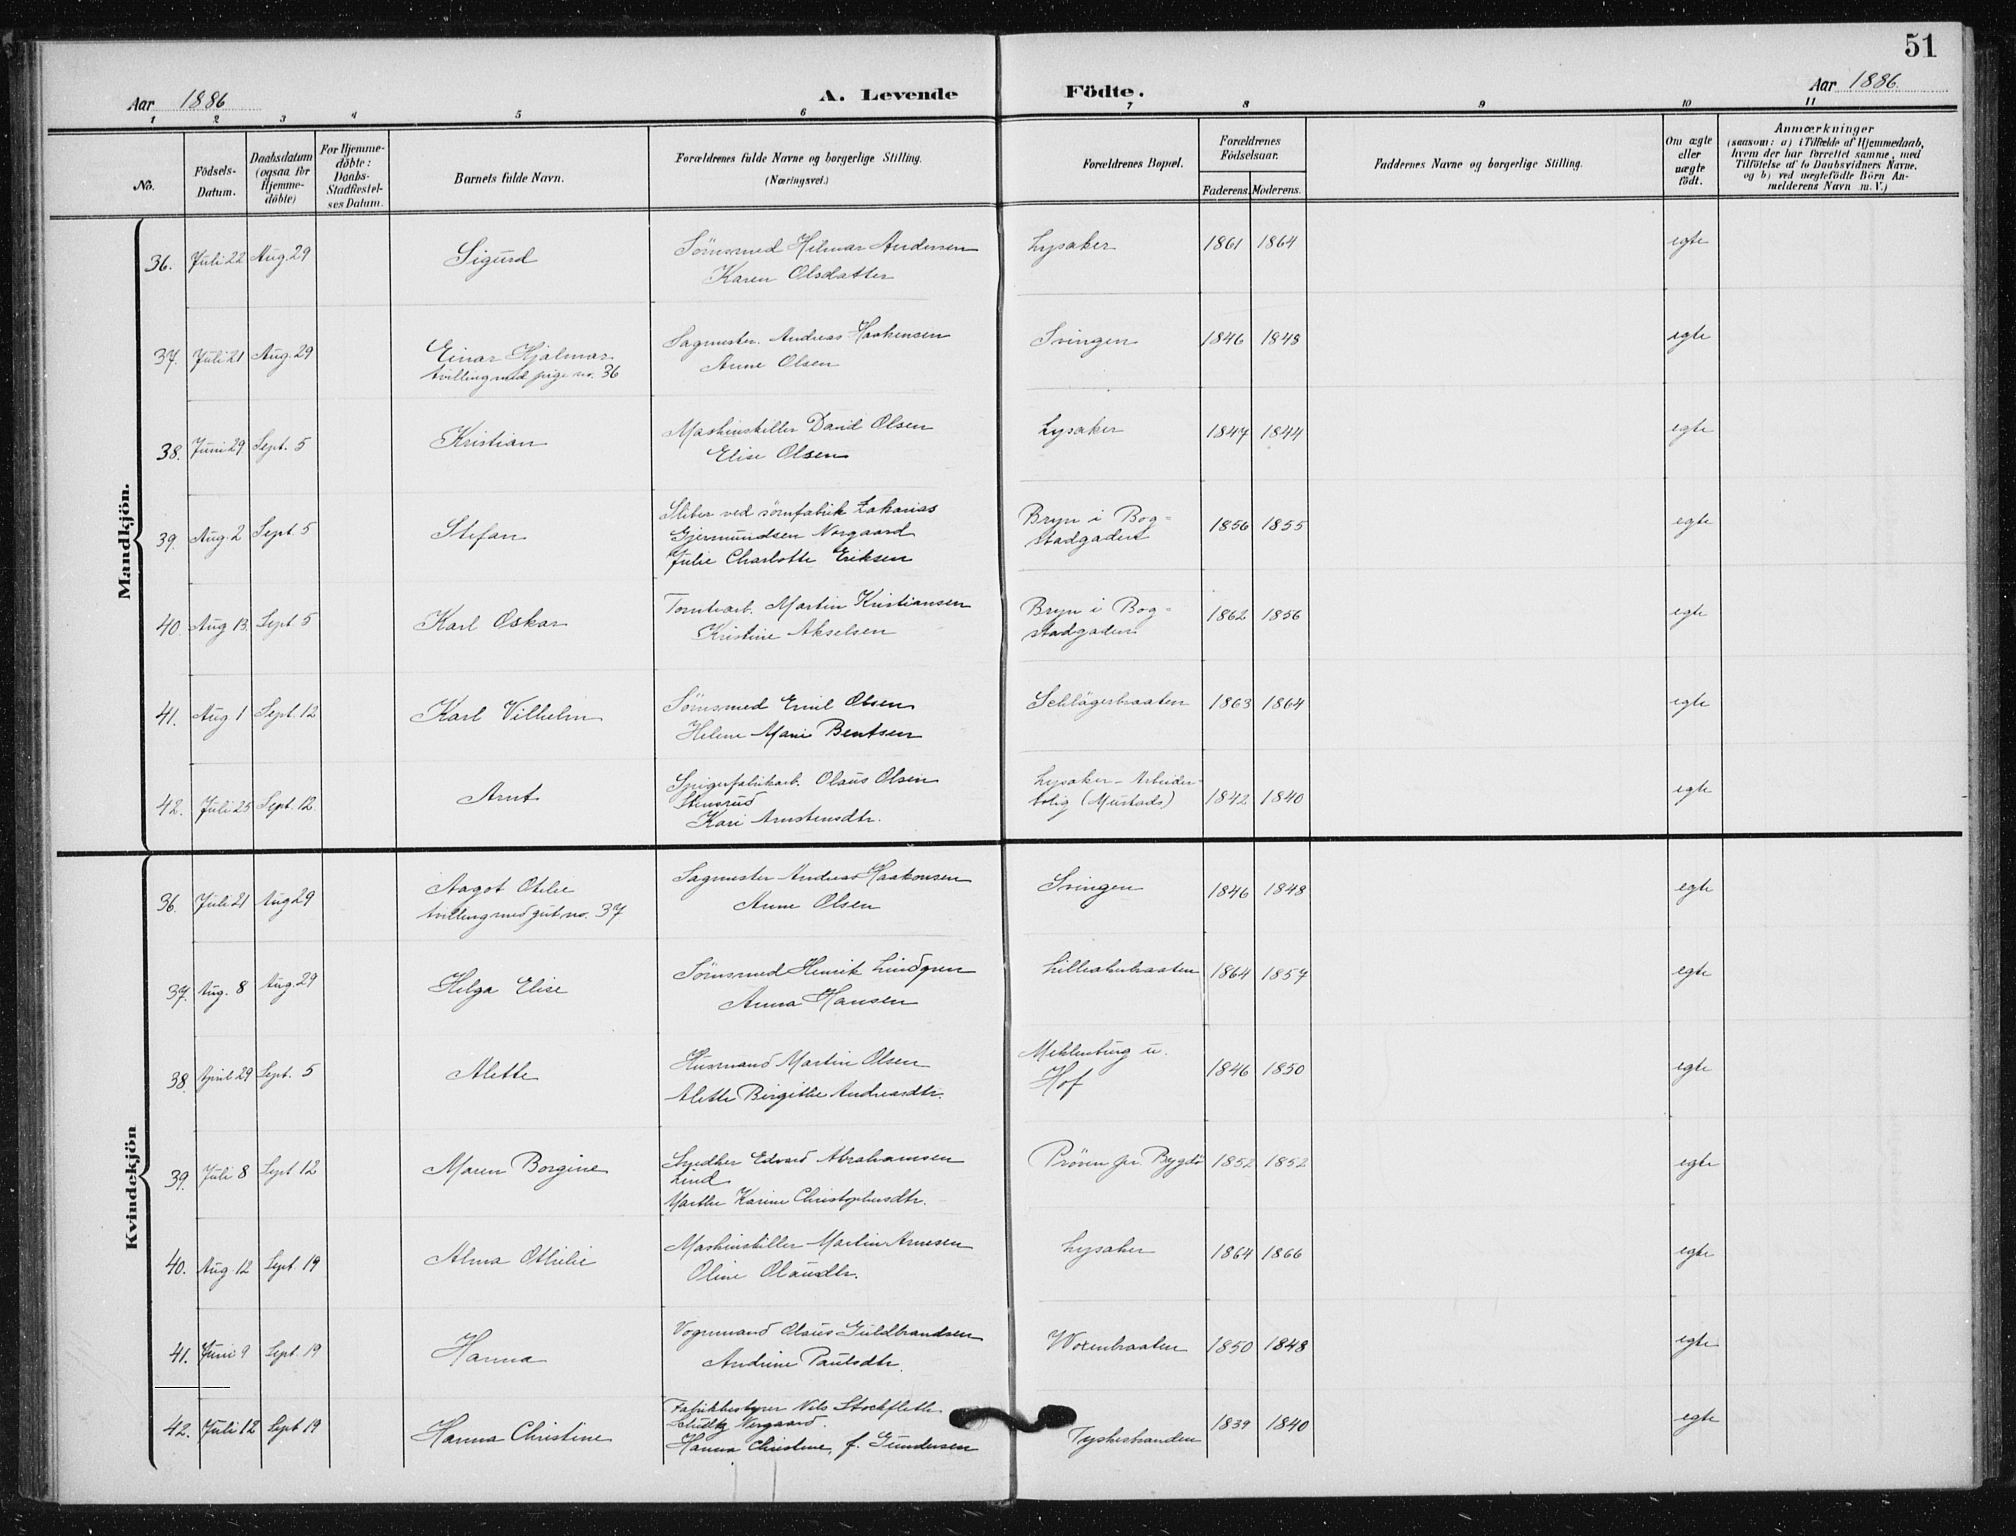 51
Aar 1886
A. Levende Födte.
Aar 1886.
1 2 3 4 5 6 7 8 9 10 11
No.
Födsels-Datum.
Daabsdatum (ogsaa for Hjemme-döbte)
For Hjemme-döbte: Daabs-Stadfæstel-ses Datum.
Barnets fulde Navn.
Forældrenes fulde Navne og borgerlige Stilling.
(Næringsvei.)
Forældrenes Bopæl.
Forældrenes Födselsaar.
Faderens. Moderens.
Faddernes Navne og borgerlige Stilling.
Om ægte eller uægte födt.
Anmærkninger
(saasom: a) i Tilfælde af Hjemmedaab, hvem der har forrettet samme, med Tilföielse af to Daabsvidners Navne, og b) ved uægtefödte Börn An-melderens Navn m. V.)
Mandkjön.
36. Juli 22 Aug. 29 Sigurd Sömsmed Helmar Andersen Lysaker 1861 1864 egte
Karen Olsdatter
37. Juli 21 Aug. 29 Einar Hjalmar Sagmester Andreas Haakensen Svingen 1846 1848 egte
tvilling med pige no. 36 Anne Olsen
38. Juni 29 Sept. 5 Kristian Maskinstiller David Olsen Lysaker 1847 1844 egte
Elise Olsen
39. Aug. 2 Sept. 5 Stefan Sliber ved sömfabrik Zakarias Bryn i Bog- 1856 1855 egte
Gjermundsen Norgaard stadgaden
Julie Charlotte Eriksen
40. Aug 13. Sept 5 Karl Oskar Tomtearb. Martin Kristiansen Bryn i Bog- 1862 1856 egte
Kristine Akselsen stadgaden
41. Aug 1 Sept. 12 Karl Vilhelm Sömsmed Emil Olsen Schlägerbraaten 1863 1864 egte
Helene Marie Bentsen
42. Juli 25 Sept. 12. Arnt Spigerfabrikarb. Olaus Olsen Lysaker - Arbeider- 1842 1840 egte
Stensrud bolig (Mustads)
Kari Arnstensdtr.
Kvindekjön
36. Juli 21 Aug 29 Aagot Otilie Sagmester Andreas Haakonsen Svingen 1846 1848 egte
tvilling med gut no. 37 Anne Olsen
37. Aug. 8 Aug. 29 Helga Elise Sömsmed Henrik Lindgren Lilleakerbraaten 1864 1857 egte
Anna Hansen
38. April 29 Sept. 5 Alette Husmand Martin Olsen Meklenburg u. 1846 1850 egte
Alette Birgithe Andreasdtr. Hof
39. Juli 8 Sept 12 Maren Borgine Snedker Edvard Abrahamsen Pröven pr. Bygdö 1852 1852 egte
Lind
Marthe Karine Christophersdtr.
40. Aug 12 Sept. 19 Alma Othilie Maskinstiller Martin Arnesen Lysaker 1864 1866 egte
Oline Olausdtr.
41. Juni 9 Sept. 19 Hanna Vognmand Olaus Guldbrandsen Woxenbraaten 1850 1848 egte
Andrine Paulsdtr.
42. Juli 12 Sept 19 Hanna Christine Fabrikbestyrer Nils Stockfleth Tyskestranden 1839 1840 egte
Schultz Norgaard.
Hanna Christine, f. Gundersen